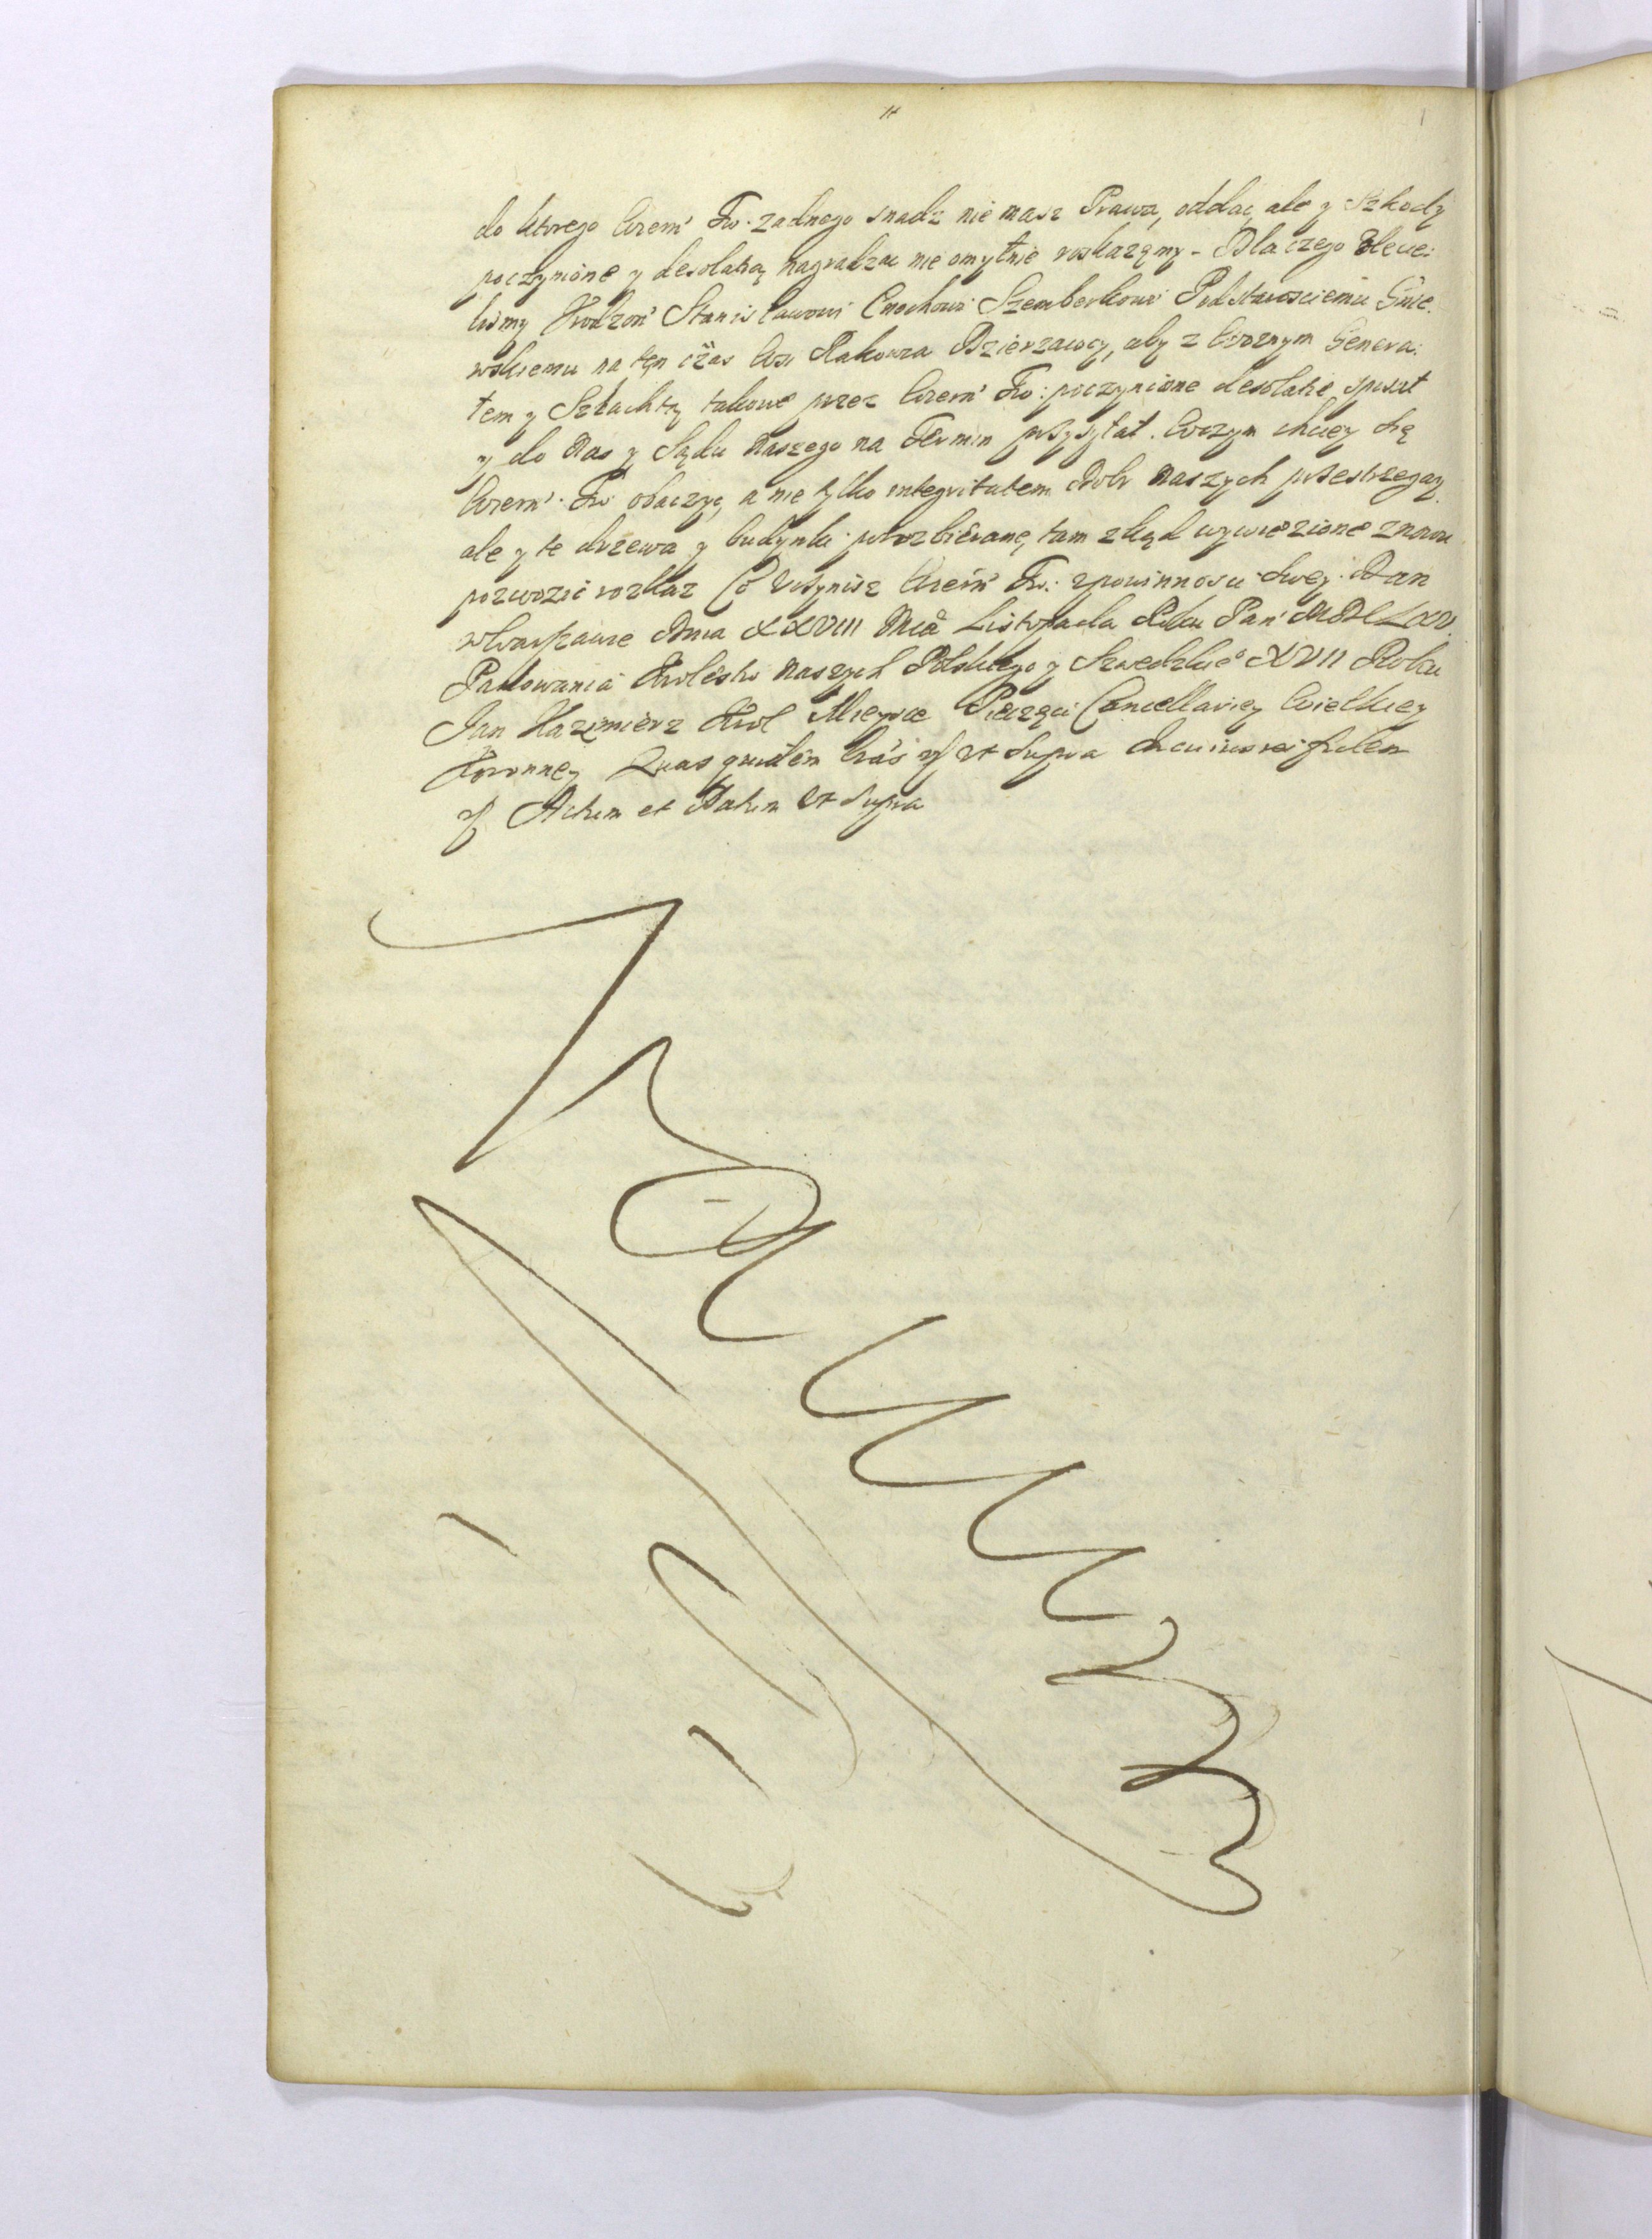 do ktorego Wrern' Tw: zadnego snadz nie masz Prawa, oddac, ale y Szkody
poczynione y desolatią nagradzac nie omylnie roskazęmy - Dlaczego Zlecie:
lismy Urodzon' Stanisławowi Enochowi Szemberkowi Podstarosciemu Gnie:
wskiemu na tęn czas Wsi Rakowca Dzierzawcy, aby z Woznym Genera:
łem y Szlachtą takowe przez Wrern' Tw: poczynione desolatie spisał
y do Nas y Sądu Naszego na Termin przysyłał. Wczym chciey się
Wrern' Tw: obaczyc, a nie tylko integritatem Dobr Naszych przestrzegay,
ale y te drzewa y budynki porozbierane, tam zkąd wywiezione znowu
pozwozic rozkaz Co Uczynisz Wrern' Tw: zpowinnosci Swey. Dan
wWarszawie Dnia XXVIII Mca Listopada Roku Pan' MDCLXV.
Panowania Krolestw Naszych Polskiego y Szwedzkieº XVII Roku
Jan Kazimierz Krol Mieysce Pieczęci Cancellariey Wielkiey
Koronney Quas quidem Lras ut Supra
Actum et Datum Ut Supra